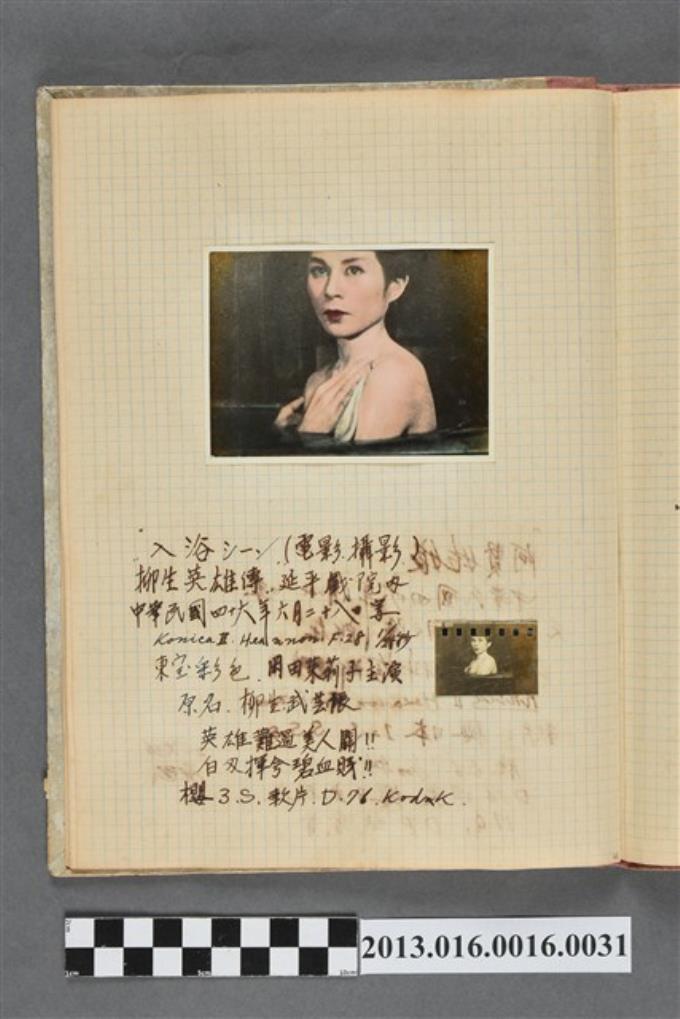 入浴シーン.(電影.攝影.)
柳生英雄傳.延平戲院内
中華民國四十六年六月二十八日写
Konica II. Hexanon. F.28.
東宝彩色.岡田茉莉子主演
原名.柳生武芸帳
英雄難過美人関!!
白刃揮兮碧血賤!!
櫻3.S.軟片.D.76.Kodak.
2013.016.0016.0031